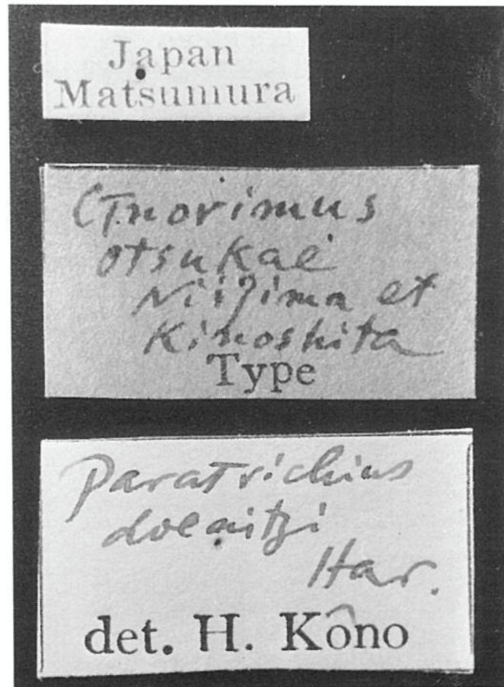 Japan
Matsumura
Gnorimus
otsukae
Niijima et
Kinoshita
Type
Paratrichius
doenitzi
Har.
det. H. Kôno